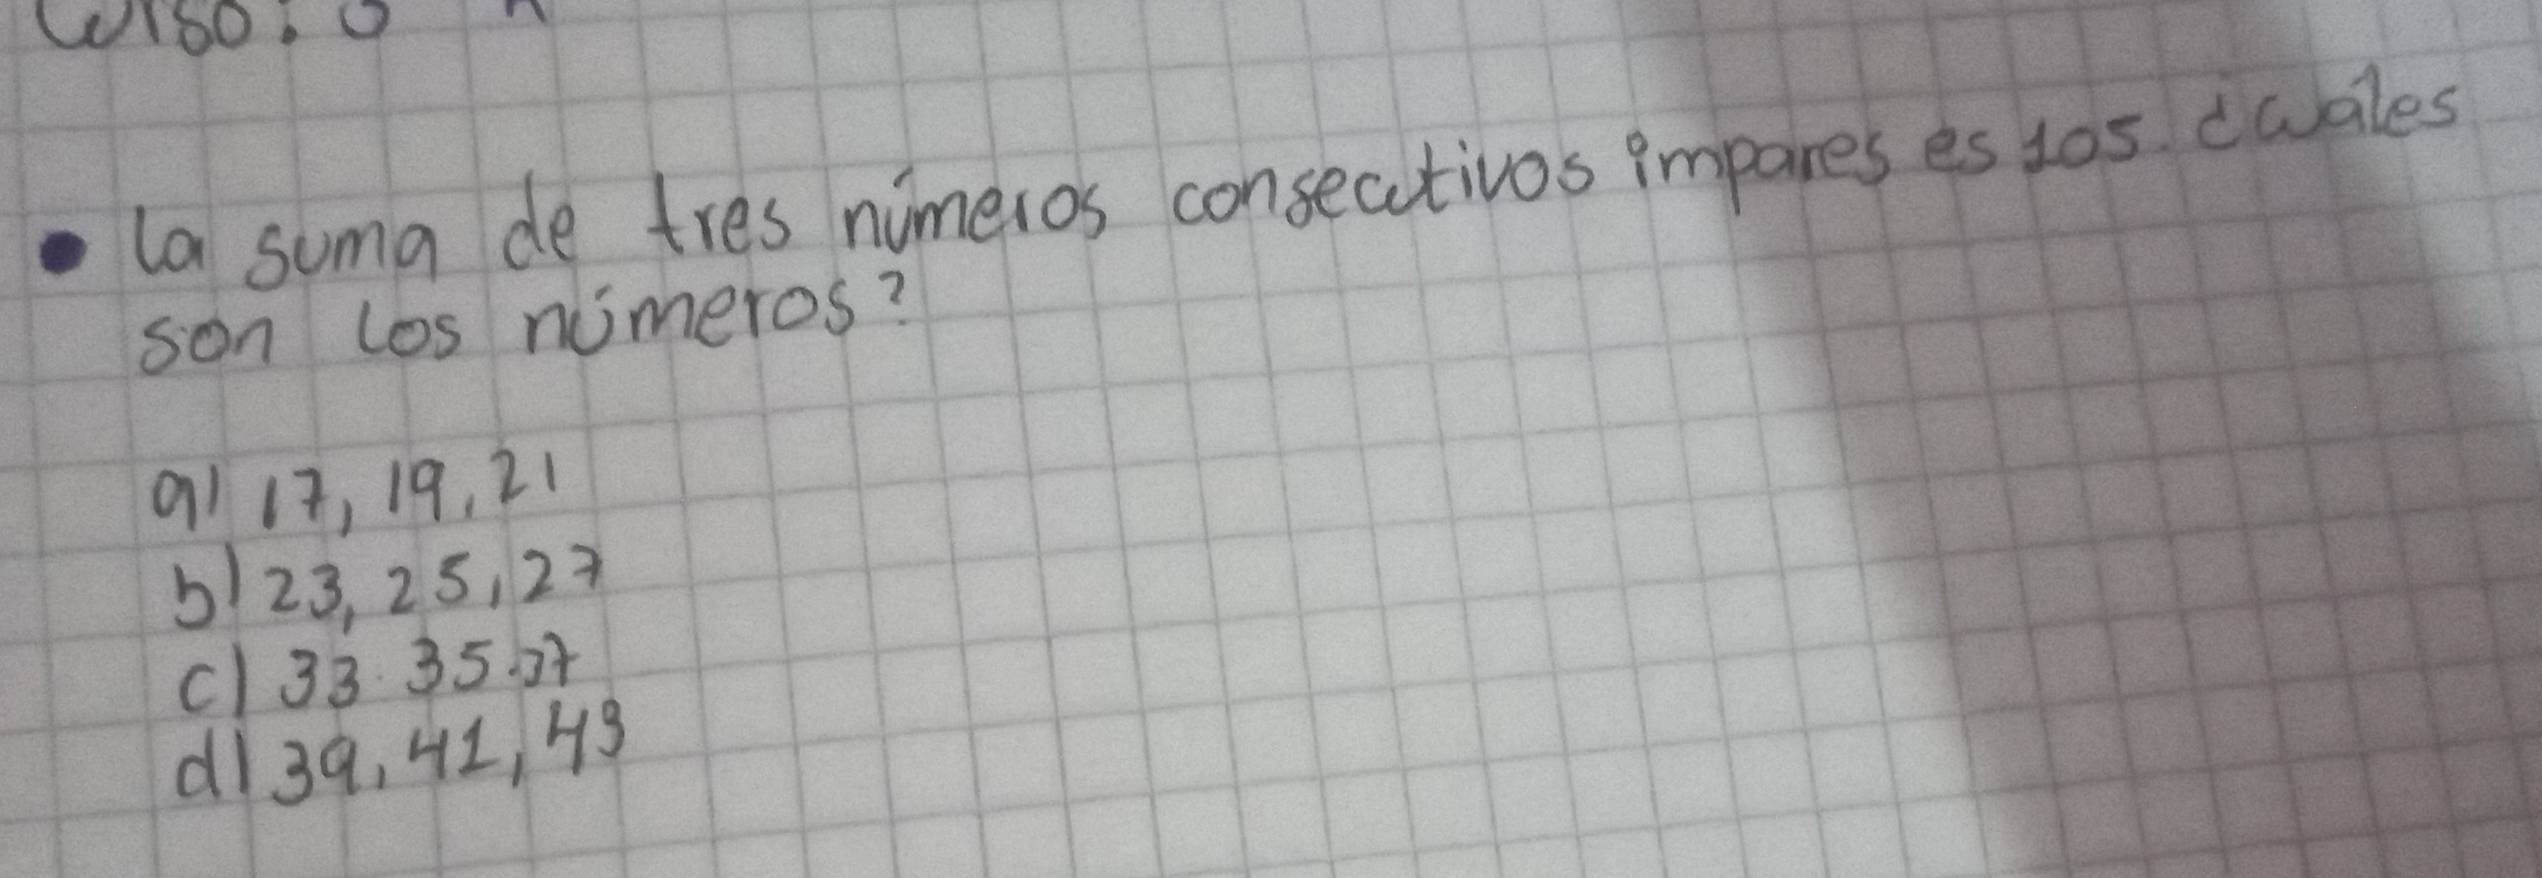 la suma de tres números consecutivos impares es 105. ¿cuáles
son los números?
a) 17, 19, 21
b) 23, 25, 27
c) 33. 35. 37
d) 39, 41, 43